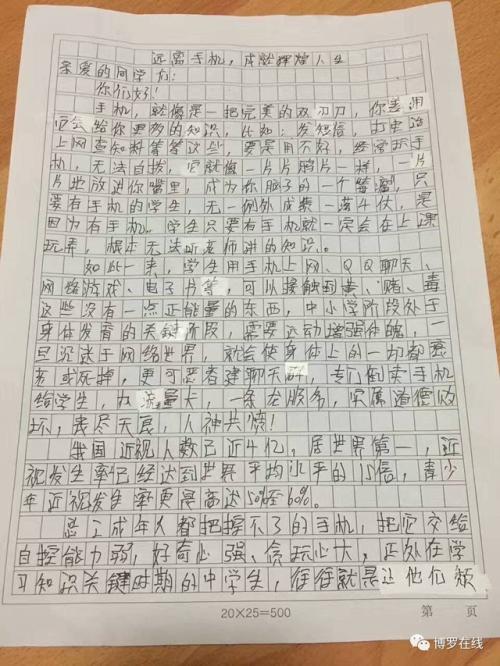 远离手机，成就辉煌人生
亲爱的同学们：
你们好！
手机，就像是一把完美的双刃刀，你善用
它会给你更多的知识，比如：发短信，打电话
上网查知料等等这些，要是用不好，经常玩手
机，无法自拨，它就像一片片鸦片一样，一片
片地放进你嘴里，成为你脑子的一个，只
要有手机的学生，无一例外成绩一落千仗，是
因为有手机。学生只要有手机就一定会在上课
玩弄，根本无法听老师讲的知识。
如此一来，学生用手机上网、QQ聊天、
网络游戏、电子书等，可以接触到黄、赌、毒
这些没有一点正能量的东西，中小学阶段处于
身体发育的关键阶段，需要运动增强体魄，一
旦沉迷于网络世界，就会使身体上的一切都衰
或死掉，更可恶者建聊天群，专门倒卖手机
给学生，办流量卡，一条龙服务，实属道德败
坏，丧尽天良，人神共愤！
我国近视人数已近4亿，居世界第一，近
视发生率已经达到世界平均水平的1.5倍，青少
年近视发生率更是高达50%至60%。
总之成年人都把握不了的手机，把它交给
自控能力弱，好奇心强、贪玩心大，正处在学
习知识关键时期的中学生，往往就是让他们颓
20×25=500 第 页
博罗在线